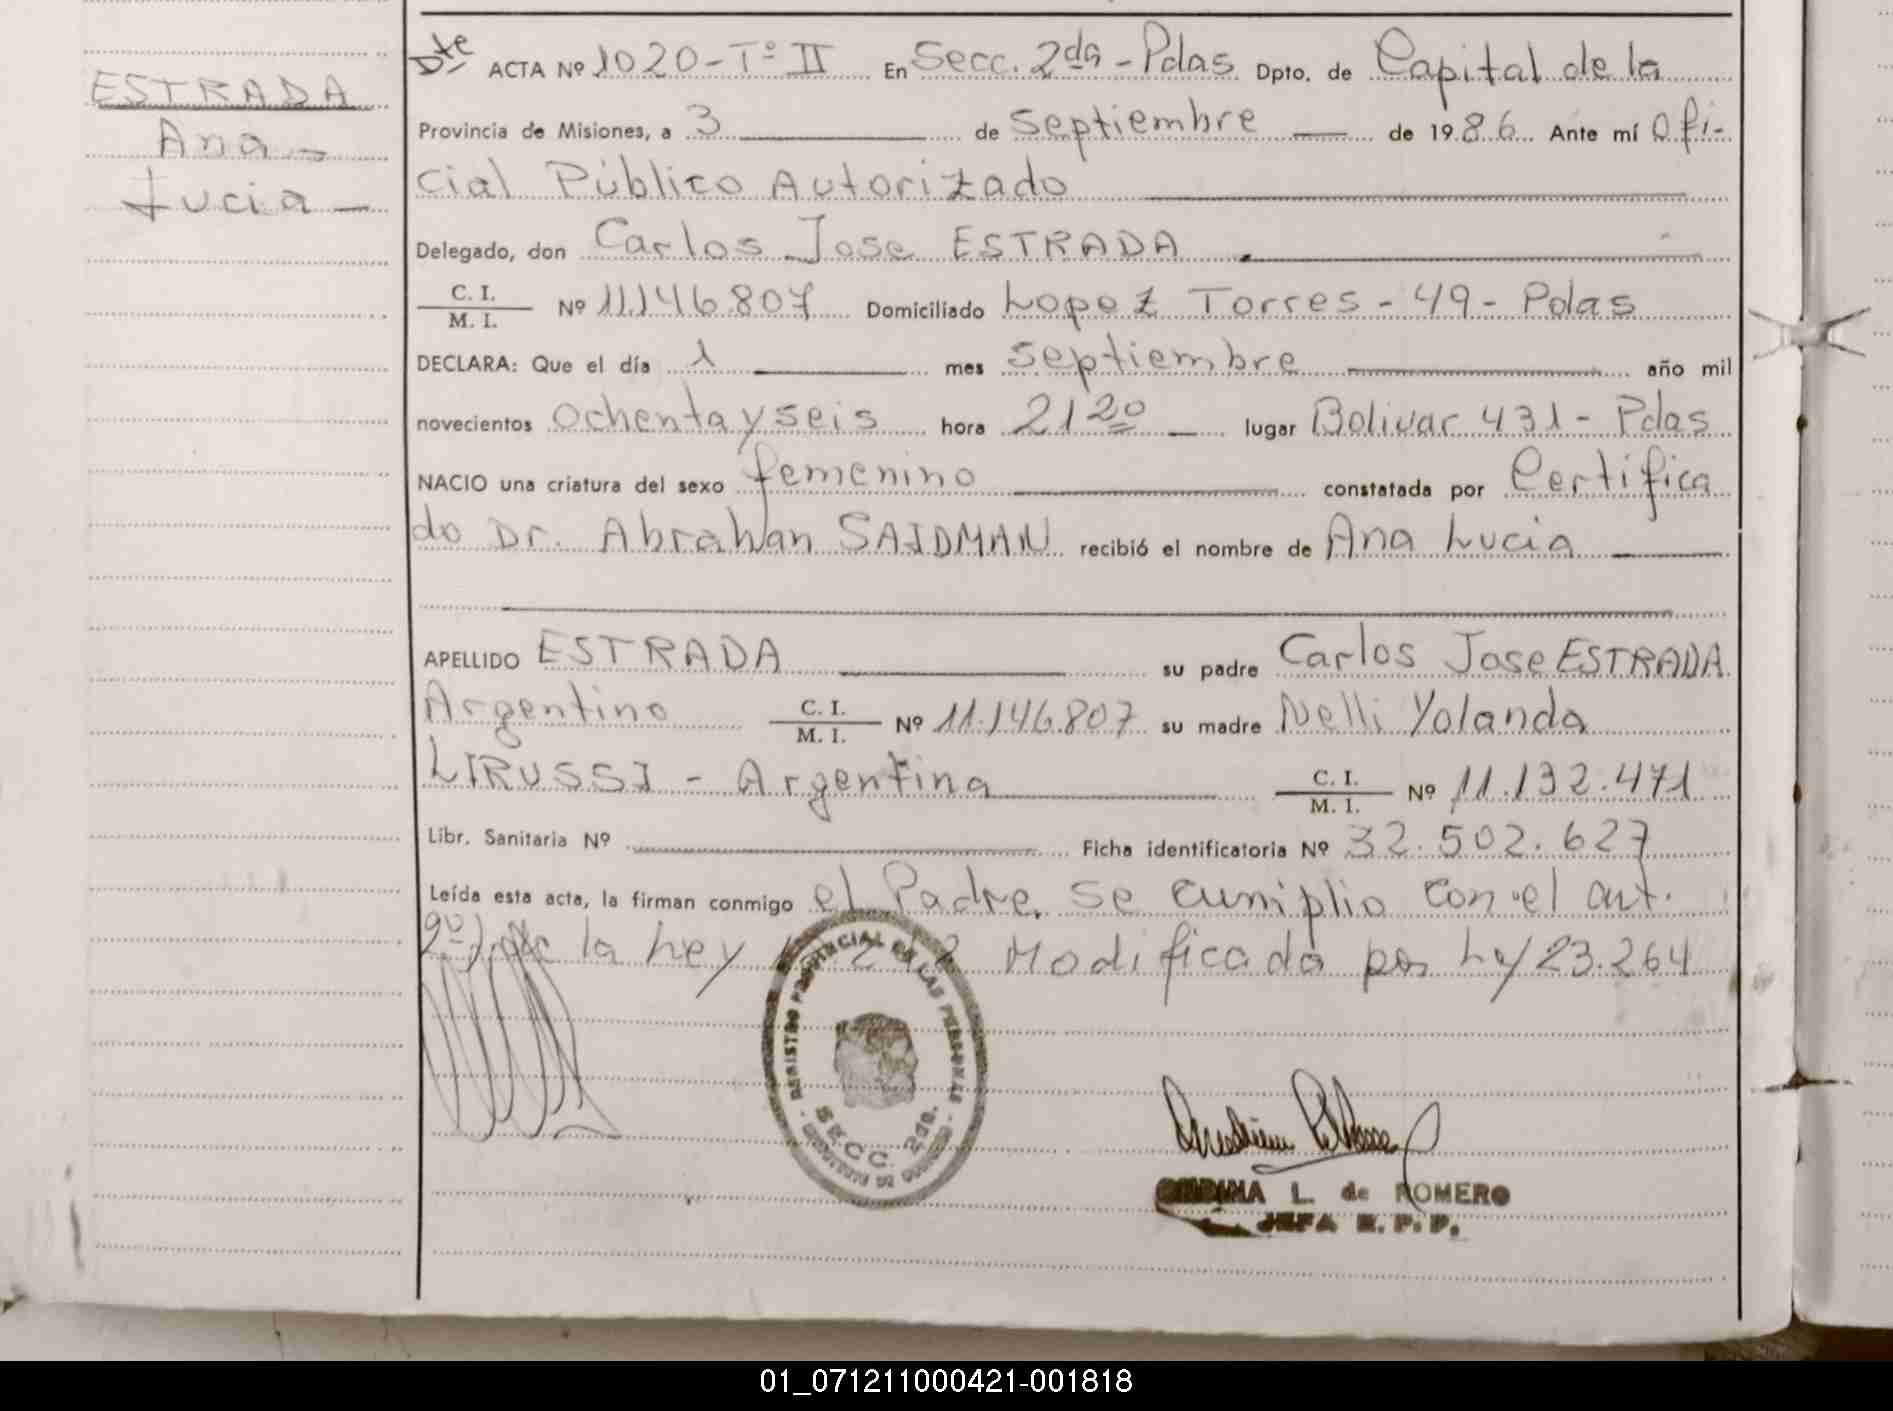 ESTRADA
Ana
Lucia
Dte ACTA Nº 1020-Tº II En Secc. 2da - Pdas Dpto. de Capital de la
Provincia de Misiones, a 3 de Septiembre de 1986 Ante mí Ofi-
cial Público Autorizado
Delegado, don Carlos Jose ESTRADA
C. I.
M. I. Nº 11.146.807 Domiciliado Lopez Torres - 49 - Pdas
DECLARA: Que el día 1 mes Septiembre año mil
novecientos Ochenta y seis hora 21 20 lugar Bolivar 431 - Pdas
NACIO una criatura del sexo femenino constatada por Certifica
do Dr. Abrahan SAIDMAN recibió el nombre de Ana Lucia
APELLIDO ESTRADA su padre Carlos Jose ESTRADA
Argentino C. I.
M. I. Nº 11.146.807 su madre Nelli Yolanda
LIRUSSI - Argentina C. I.
M. I. Nº 11.132.471
Libr. Sanitaria Nº Ficha identificatoria Nº 32.502.627
Leída esta acta, la firman conmigo el Padre. Se cumplio con el art.
9º) de la Ley Modificada por Ley 23.264
REGISTRO PROVINCIAL DE LAS PERSONAS
SECC. 2da.
L. de ROMERO
JEFA R. P. P.
01_071211000421-001818